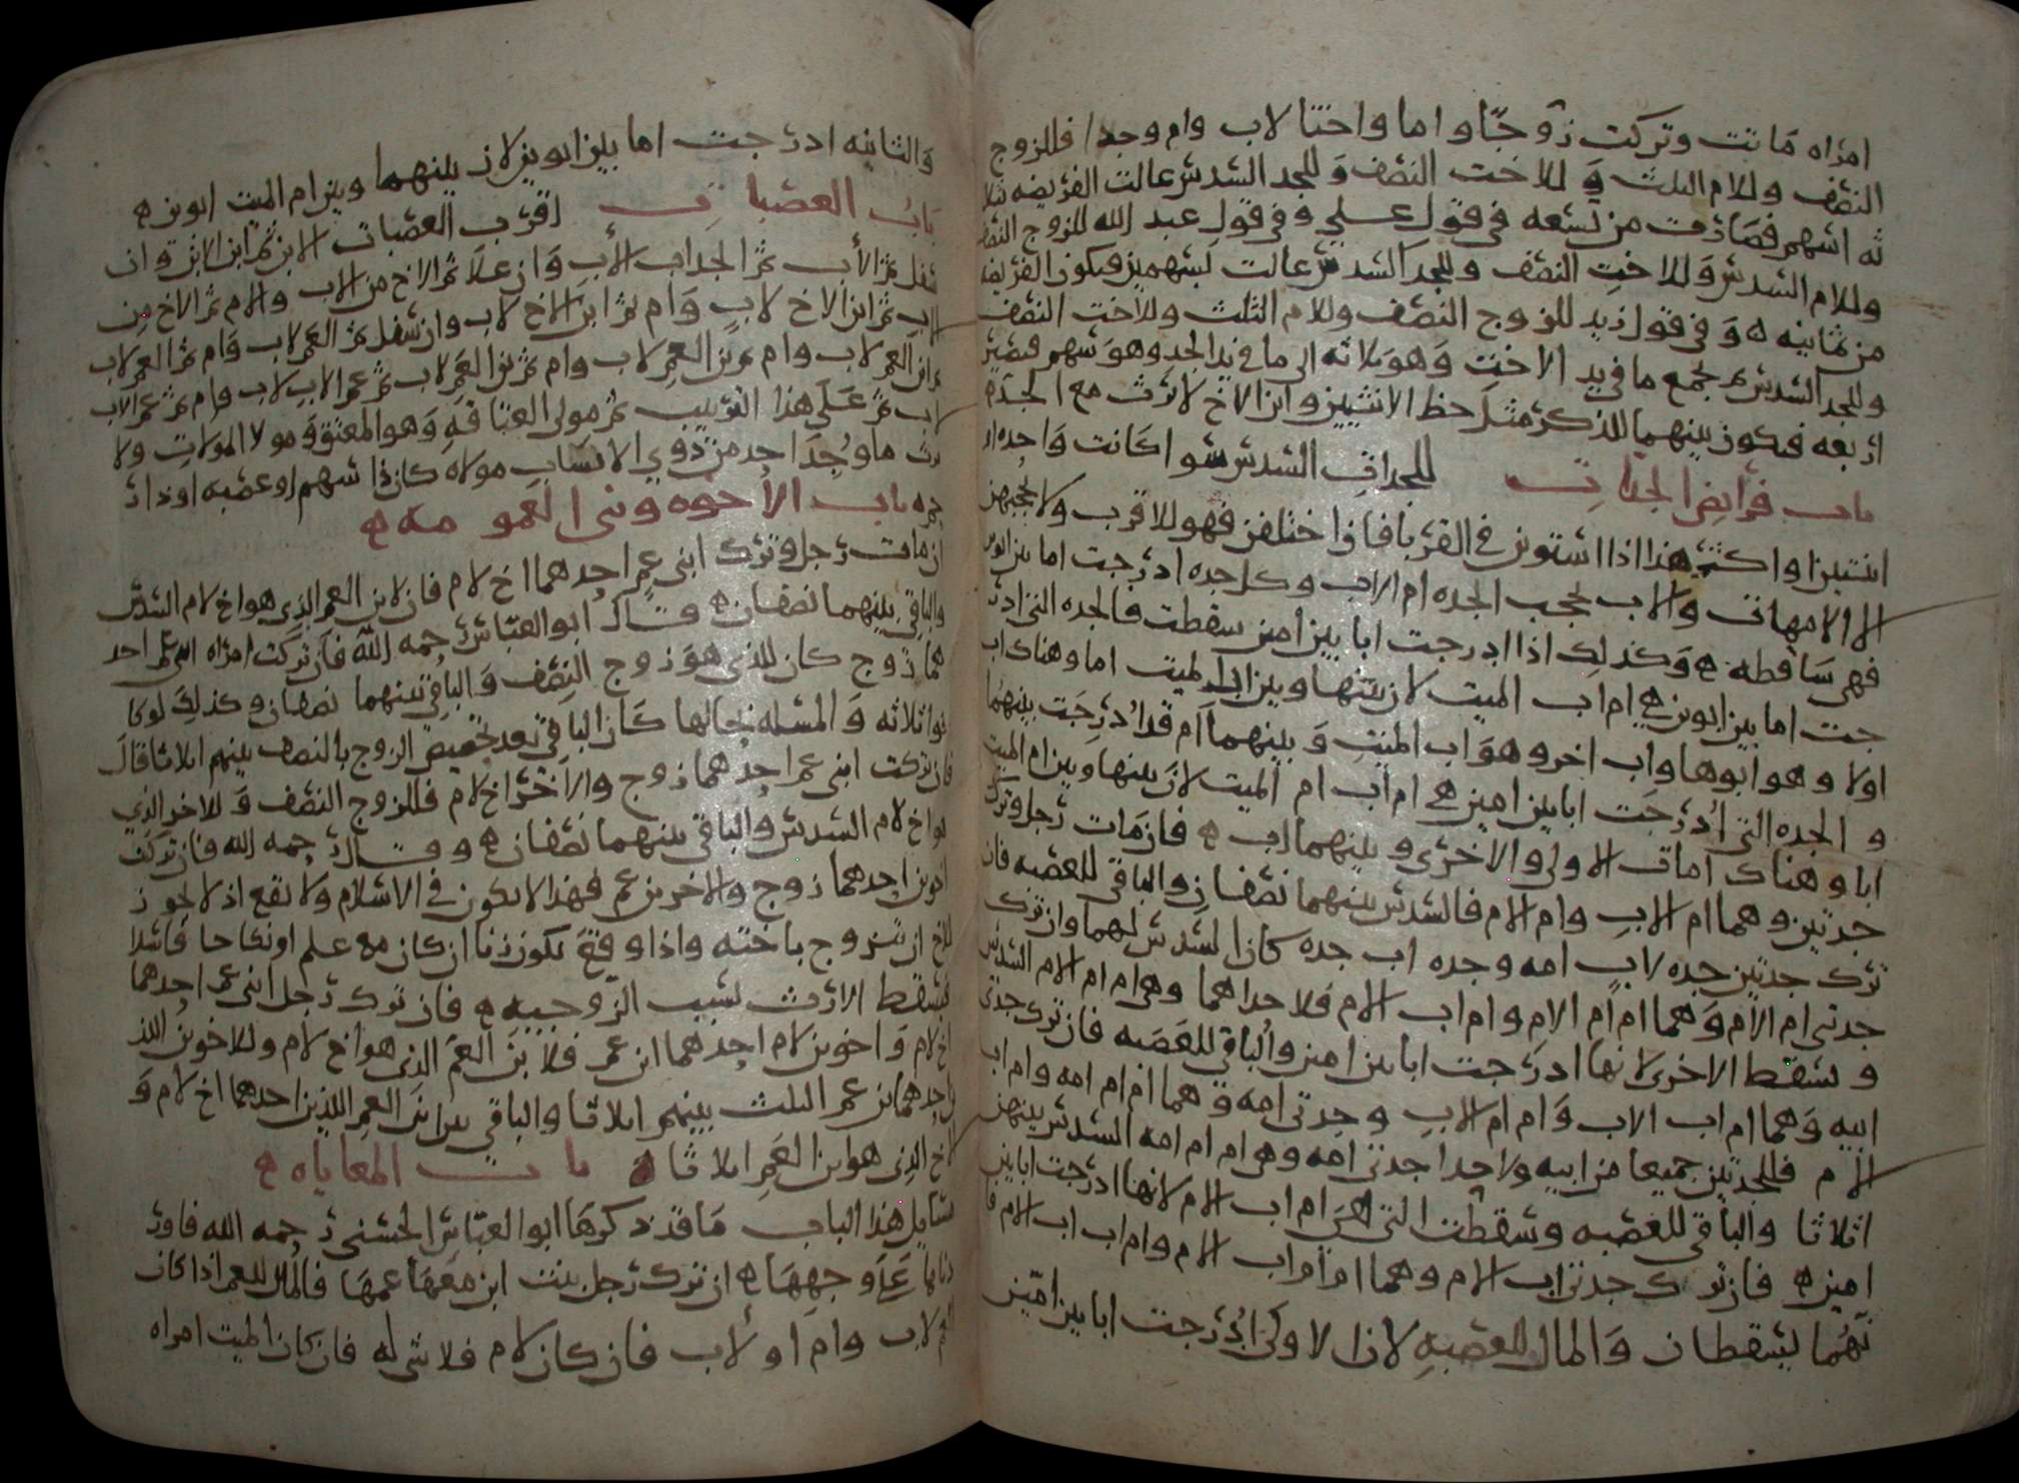 امراه ماتت وتركت زوجا واما واختا لاب وام وجدا فللزوج
النصف وللام الثلث وللاخت النصف وللجد السدس عالت الفريضه بثلا
ثه اسهم فصارت من تسعه في قول علي وفي قول عبد الله للزوج النصف
وللام السدس وللاخت النصف وللجد السدس عالت بسهمين فيكون الفريضه
من ثمانيه ه وفي قول زيد للزوج النصف وللام الثلث وللاخت النصف
وللجد السدس ثم يجمع ما في يد الاخت وهو ثلاثه الى ما في يد الجد وهو سهم فيصير
اربعه فيكون بينهما للذكر مثل حظ الانثيين وابن الاخ لا يرث مع الجد ه
باب فرايض الجدات للجدات السدس سوا كانت واحده او
اثنتين او اكثر هذا اذا استوين في القربا فاذا اختلفن فهو للاقرب ولا يحجبهن
الا الامهات والاب يحجب الجده ام الاب وكل جده ادرجت اما بين ابوين
فهي ساقطه ه وكذلك اذا ادرجت ابا بين امين سقطت فالجده التي ادر
جت اما بين ابوين هي ام اب الميت لان بينها وبين اب الميت اما وهناك اب
اولا وهو ابوها واب اخر وهو اب الميت وبينهما ام قد ادرجت بينهما
و الجده التي ادرجت ابا بين امين هي ام اب ام الميت لان بينها وبين ام الميت
ابا وهناك اما الاولى والاخرى وبينهما اب ه فان مات رجل وترك
جدتين وهما ام الاب وام الام فالسدس بينهما نصفان والباقي للعصبه فان
ترك جدتين جده لاب امه وجده اب جده كان السدس لهما وان ترك
جدتى ام الام وهما ام ام الام وام اب الام فلاحداهما وهي ام ام الام السدس
وتسقط الاخرى لانها ادرجت ابا بين امين والباقي للعصبه فان ترك جدتى
ابيه وهما ام اب الاب وام ام الاب وجدتى امه وهما ام ام امه وام اب
الام فللجدتين جميعا من ابيه ولاحدا جدتى امه وهي ام ام امه السدس بينهن
اثلاثا والباقي للعصبه وسقطت التي هي ام اب الام لانها ادرجت ابا بين
امين ه فان ترك جدتى اب الام وهما ام ام اب الام وام اب اب الام فا
نهما يسقطان والمال للعصبه لان الاولى ادرجت ابا بين امين
والثانيه ادرجت اما بين ابوين لان بينهما وبين ام الميت ابوين ه
باب العصبات اقرب العصبات الابن ثم ابن الابن وان
سفل ثم الاب ثم الجد اب الاب وان علا ثم الاخ من الاب والام ثم الاخ من
الاب ثم ابن الاخ لاب وام ثم ابن الاخ لاب وان سفل ثم العم لاب وام ثم العم لاب
ثم ابن العم لاب وام ثم بن العم لاب وام ثم بن العم لاب ثم عم الاب لاب وام ثم عم الاب
لاب ثم على هذا الترتيب ثم مولى العتاقه وهو المعتق ومولا الموالات ولا
يرث ما وجد احد من ذوي الانساب مولاه كان ذا سهم او عصبه او ذا ر
حم ه باب الاخوه وبنى العمومه ه
ان مات رجل وترك ابنى عم احدهما اخ لام فان لابن العم الذي هو اخ لام السدس
والباقي بينهما نصفان ه وقال ابو العباس رحمه الله فان تركت امراه ابني عم احد
هما زوج كان للذي هو زوج النصف والباقي بينهما نصفان وكذلك لو كا
نوا ثلاثه والمسله بحالها كان الباقي بعد تخصيص الزوج بالنصف بينهم اثلاثا قال
فان تركت ابنى عم احدهما زوج والاخر اخ لام فللزوج النصف وللاخر الذي
هو اخ لام السدس والباقي بينهما نصفان ه وقال رحمه الله فان تركت
اخوين احدهما زوج والاخر بن عم فهذا لا يكون في الاسلام ولا يقع اذ لا يجوز
للاخ ان يتزوج باخته واذا وقع يكون زنا ان كان مع علم او نكاحا فاسدا
فيسقط الارث بسبب الزوجيه ه فان ترك رجل ابنى عم احدهما
اخ لام واخوين لام احدهما ابن عم فلابن العم الذي هو اخ لام وللاخوين اللذ
احدهما بن عم الثلث بينهم اثلاثا والباقي بين ابنى العم اللذين احدهما اخ لام و
الاخ الذي هو ابن العم اثلاثا ه باب المعاياه ه
مسايل هذا الباب ما قد ذكرها ابو العباس الحسنى رحمه الله فاور
دناها على وجهها ه ان ترك رجل بنت ابن معها عمها فالمال للعم اذا كان
العم لاب وام او لاب فان كان لام فلا شي له فان كان الميت امراه